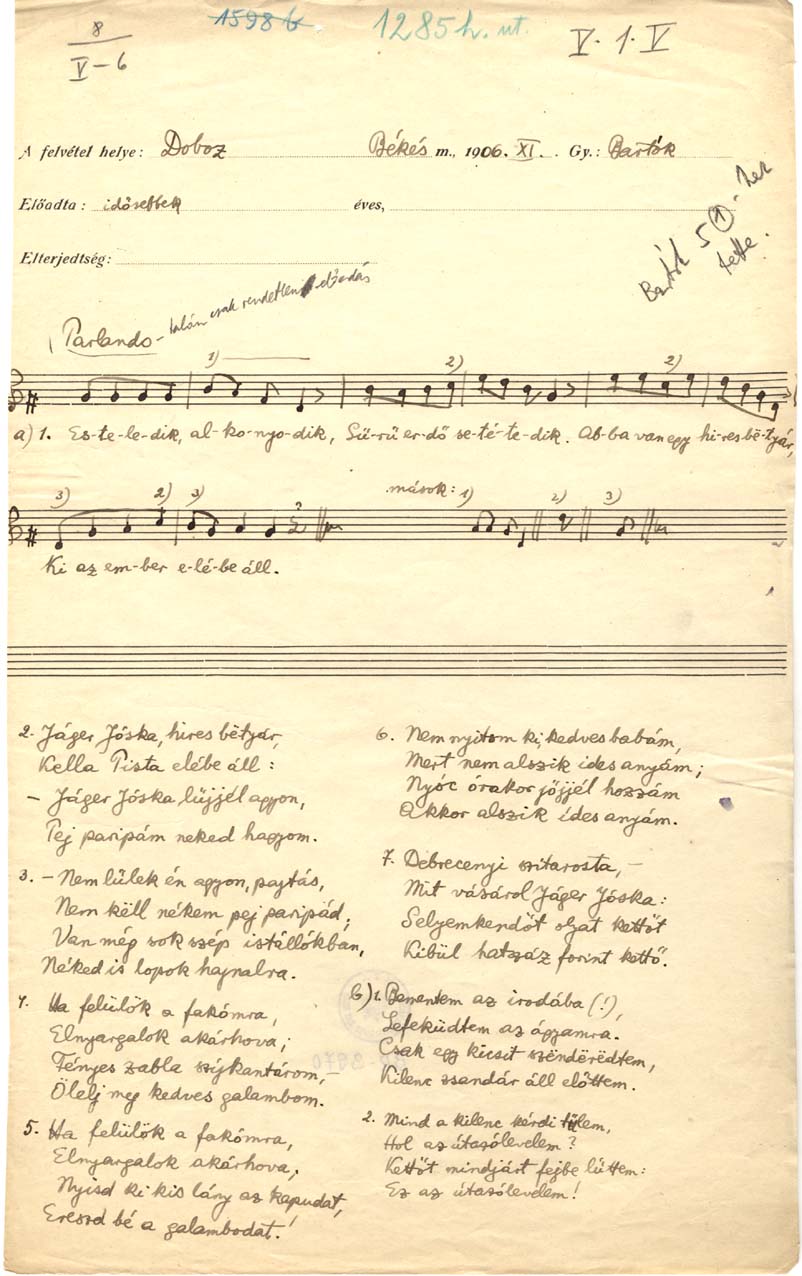 8
V-6
1598 b
1285 h. ut.
V. 1. V
A felvétel helye: Doboz Békés m., 1906. XI. Gy.: Bartók
Előadta: idősebbek éves,
Elterjedtség:
Bartók 5 ①-hez
tette.
Parlando - talán csak rendetlen előadás
1) 2) 2)
a) 1. Es-te-le-dik, al-ko-nyo-dik, Sü-rü er-dő se-té-te-dik. Ab-ba van egy hi-res bë-tyár,
3) 2) 3) ? mások: 1) 2) 3)
Ki az em-ber e-lé-be áll.
2. Jáger Jóska, hires bëtyár,
Kella Pista elébe áll:
- Jáger Jóska lüjjél agyon,
Pej paripám neked hagyom.
3. - Nem lülek én agyon, pajtás,
Nem këll nékem pej paripád,
Van még sok szép istállókban,
Néked is lopok hajnalra.
4. Ha felülök a fakómra,
Elnyargalok akárhova;
Fényes zabla szíjkantárom, -
Ölelj meg kedves galambom.
5. Ha felülök a fakómra,
Elnyargalok akárhova;
Nyisd ki kis lány az kapudat,
Ereszd bé a galambodat!
6. Nem nyitom ki, kedves babám,
Mert nem alszik ides anyám;
Nyóc órakor jöjjél hozzám
Akkor alszik ides anyám.
7. Debrecenyi szitarosta, -
Mit vásárol Jáger Jóska:
Selyemkendőt olyat kettőt
Kibül hatszáz forint kettő.
b) 1. Bementem az irodába (!),
Lefeküdtem az ágyamra.
Csak egy kicsit szënderëdtem,
Kilenc zsandár áll előttem.
2. Mind a kilenc kérdi tőlem,
Hol az útazólevelem?
Kettőt mindjárt fejbe lüttem:
Ez az útazólevelem!